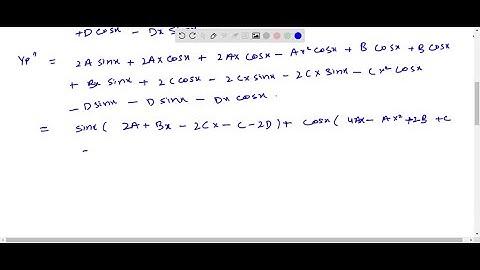 +D cosx − Dx sinx
Yp" = 2A sinx + 2Ax cosx + 2Ax cosx − Ax² cosx + B cosx + B cosx
+ Bx sinx + 2C cosx − 2Cx sinx − 2Cx sinx − Cx² cosx
− D sinx − D sinx − Dx cosx.
= sinx ( 2A + Bx − 2Cx − C − 2D ) + cosx ( 4Ax − Ax² + 2B + C
−